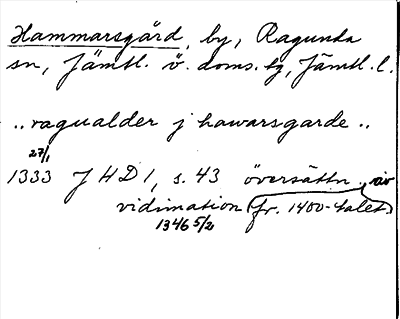 Hammarsgård, by, Ragunda
sn, Jämtl. ö. doms. tg, Jämtl. l.
.. ragualder j hawarsgarde ..
27/1
1333 JHD 1, s. 43 översättn. av
vidimation (fr. 1400-talet)
1346 5/2